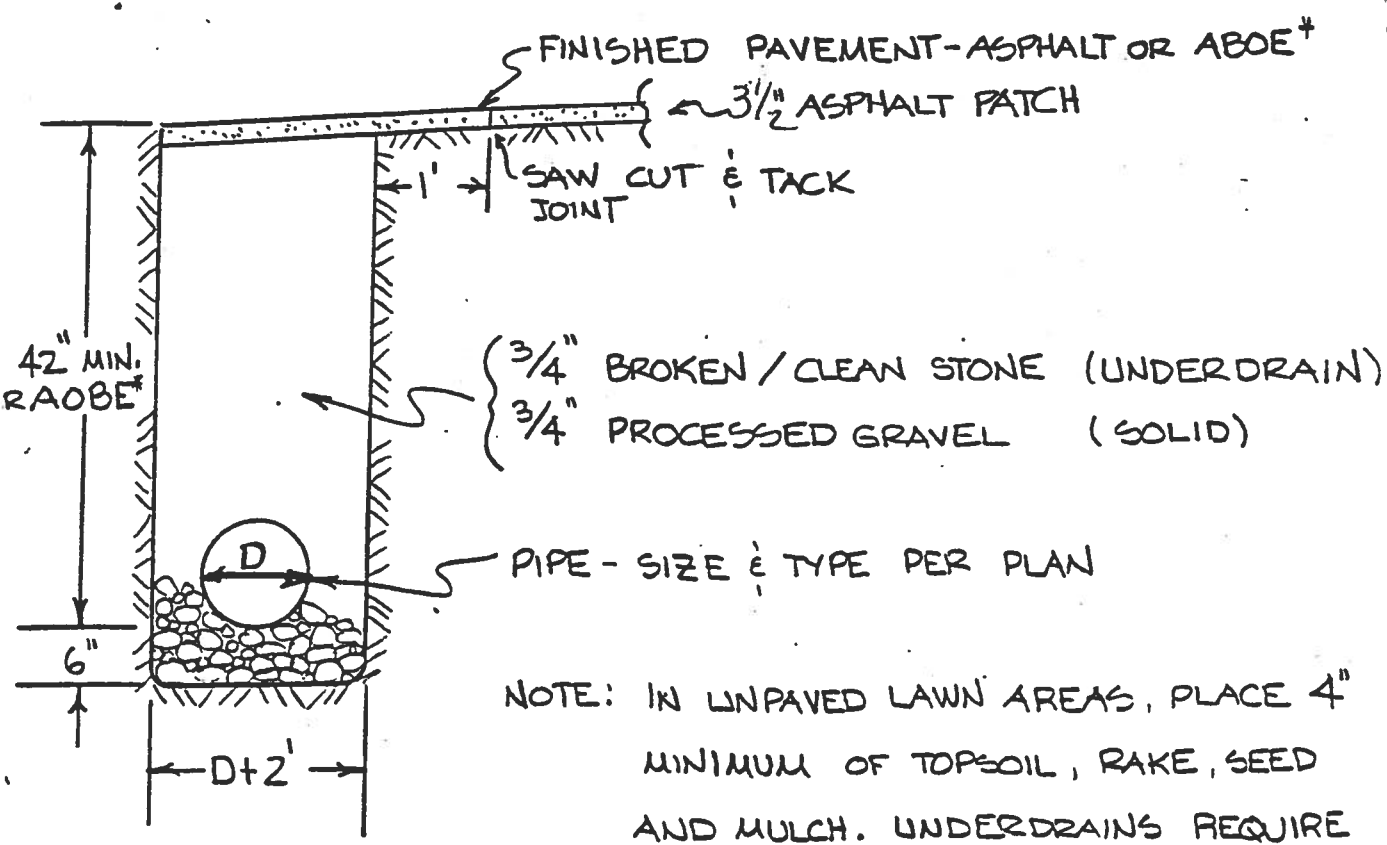 FINISHED PAVEMENT-ASPHALT OR ABOE*
3 1/2" ASPHALT PATCH
1'
SAW CUT & TACK
JOINT
42" MIN.
RAOBE*
3/4" BROKEN/CLEAN STONE (UNDERDRAIN)
3/4" PROCESSED GRAVEL (SOLID)
D
PIPE - SIZE & TYPE PER PLAN
6"
D+2'
NOTE: IN UNPAVED LAWN AREAS, PLACE 4"
MINIMUM OF TOPSOIL, RAKE, SEED
AND MULCH. UNDERDRAINS REQUIRE